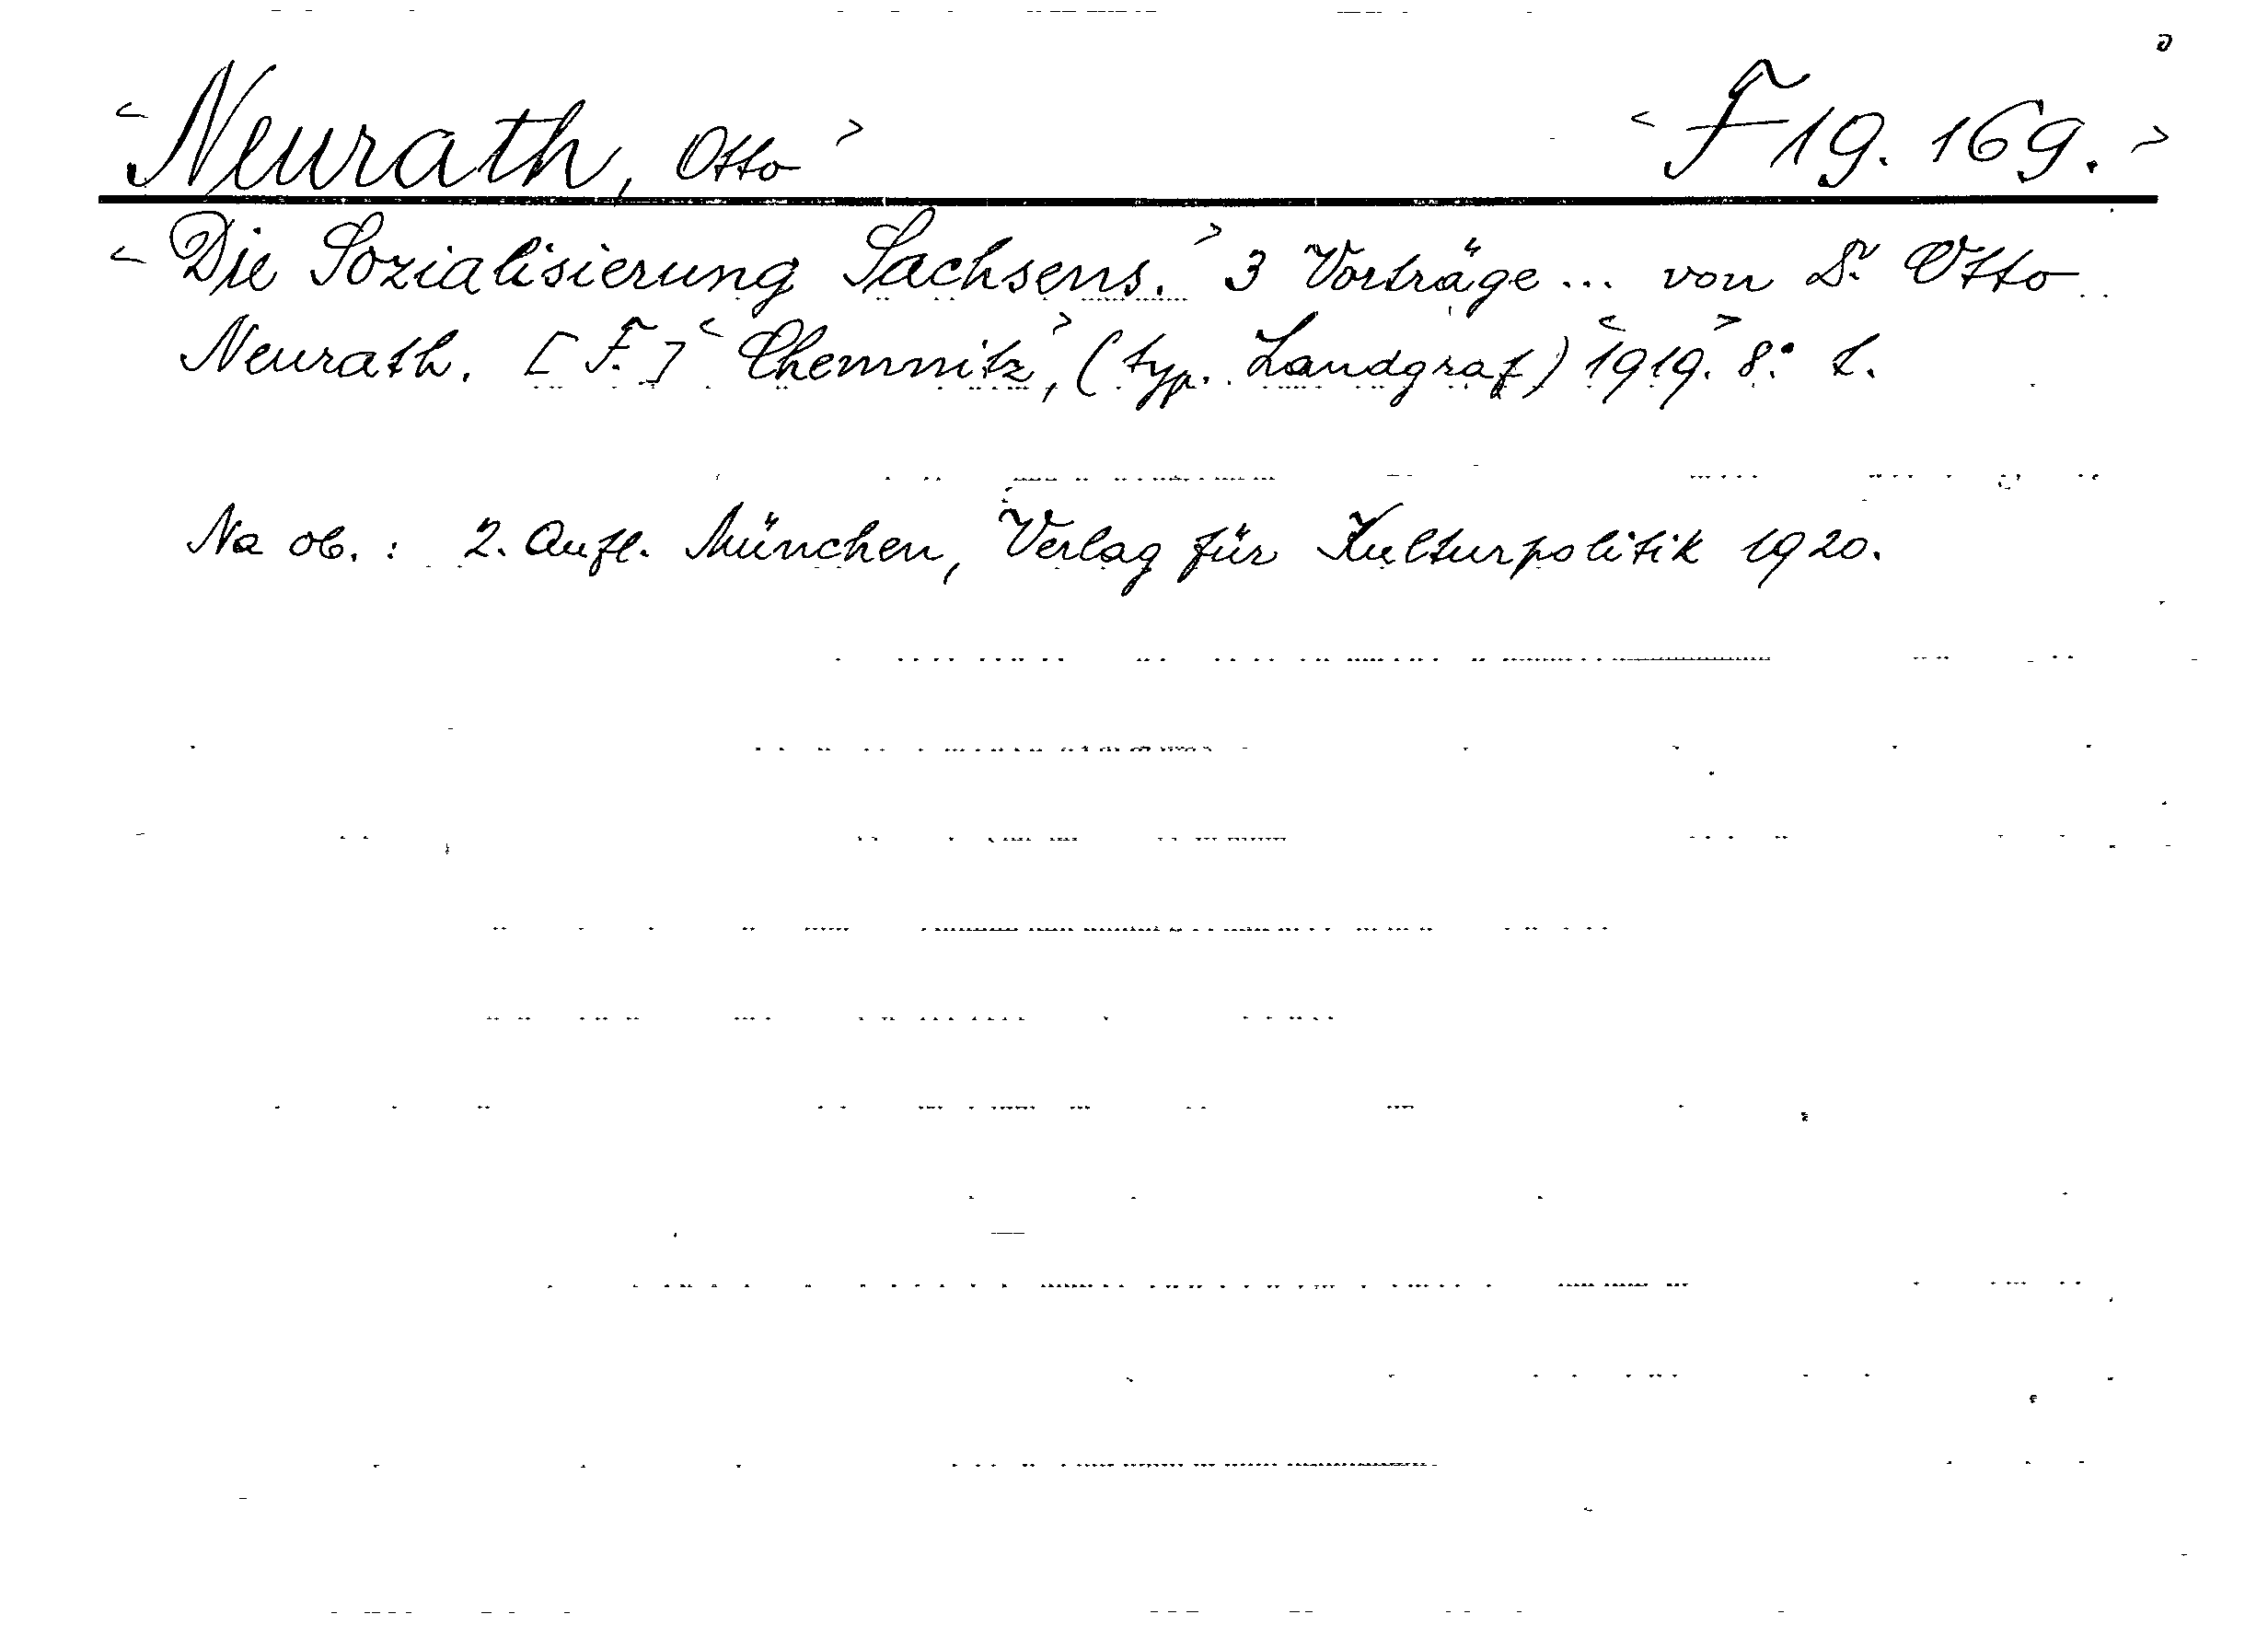 <Neurath, Otto> <F 19. 169.>
<Die Sozialisierung Sachsens.> 3 Vorträge ... von Dr. Otto
Neurath. [F.] <Chemnitz>, (typ. Landgraf) <1919.> 8.° t.
Na ob.: 2. Aufl. München, Verlag für Kulturpolitik 1920.